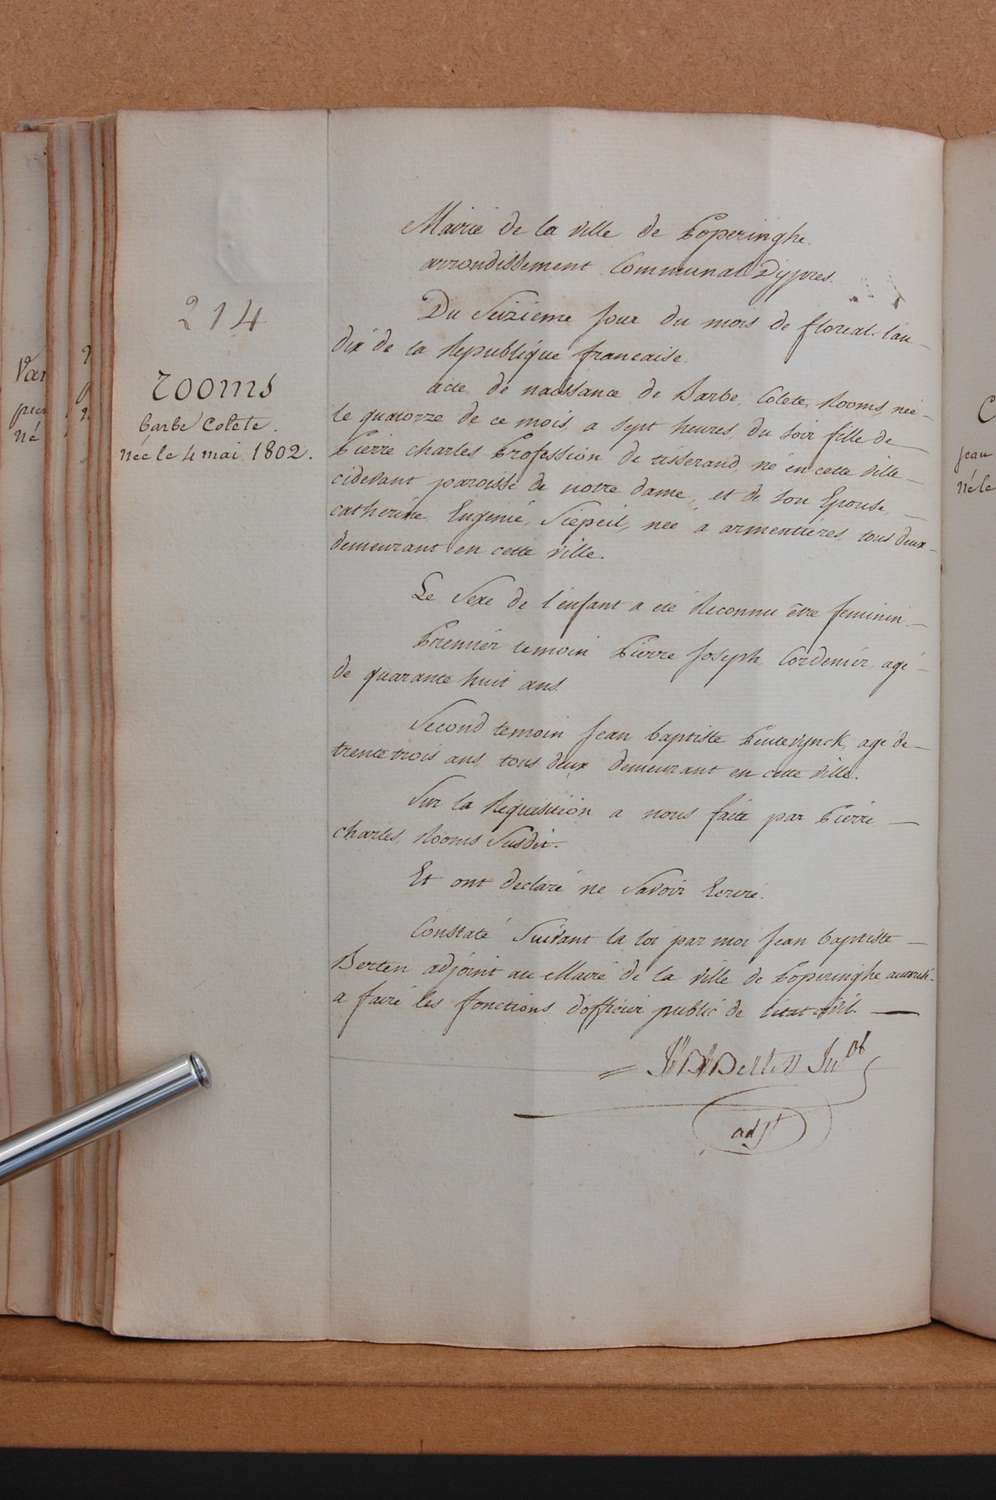 Mairie de la ville de Poperinghe.
arrondissement Communal D'ypres.
214
Du Seizieme jour du mois de floreal l'an
dix de la Republique francaise.
rooms
barbe Colete.
née le 4 mai 1802.
acte de naissance de Barbe Colete Rooms née
le quatorze de ce mois, a sept heures du soir fille de
Pierre charles Profession de tisserand né en cette ville
cidevant paroisse de notre dame, et de son Epouse
catherine Eugenie née a armentieres tous deux
demeurant en cette ville.
Le Sexe de l'enfant a été Reconnu être feminin.
Premier temoin Pierre Joseph Cordenier agé
de quarante huit ans
Second temoin Jean baptiste agé de
trente trois ans tous deux demeurant en cette ville.
Sur la Requisition a nous faite par Pierre
charles Rooms Susdit.
Et ont declaré ne Savoir Ecrire.
Constaté Suivant la loi par moi Jean baptiste
Berten adjoint au Maire de la ville de Poperinghe
a faire les fonctions d'officier public de l'etat civil.
Berten
adjt
Var
né
jean
né le